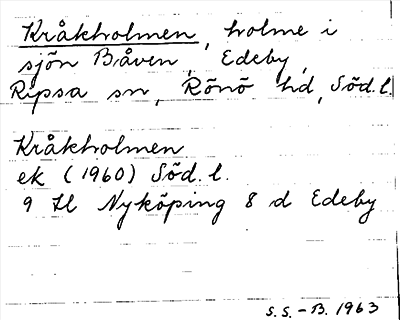 Kråkholmen, holme i
sjön Båven, Edeby,
Ripsa sn, Rönö hd, Söd. l.
Kråkholmen
ek (1960) Söd. l.
9 H Nyköping 8 d Edeby
S.S. - B. 1963